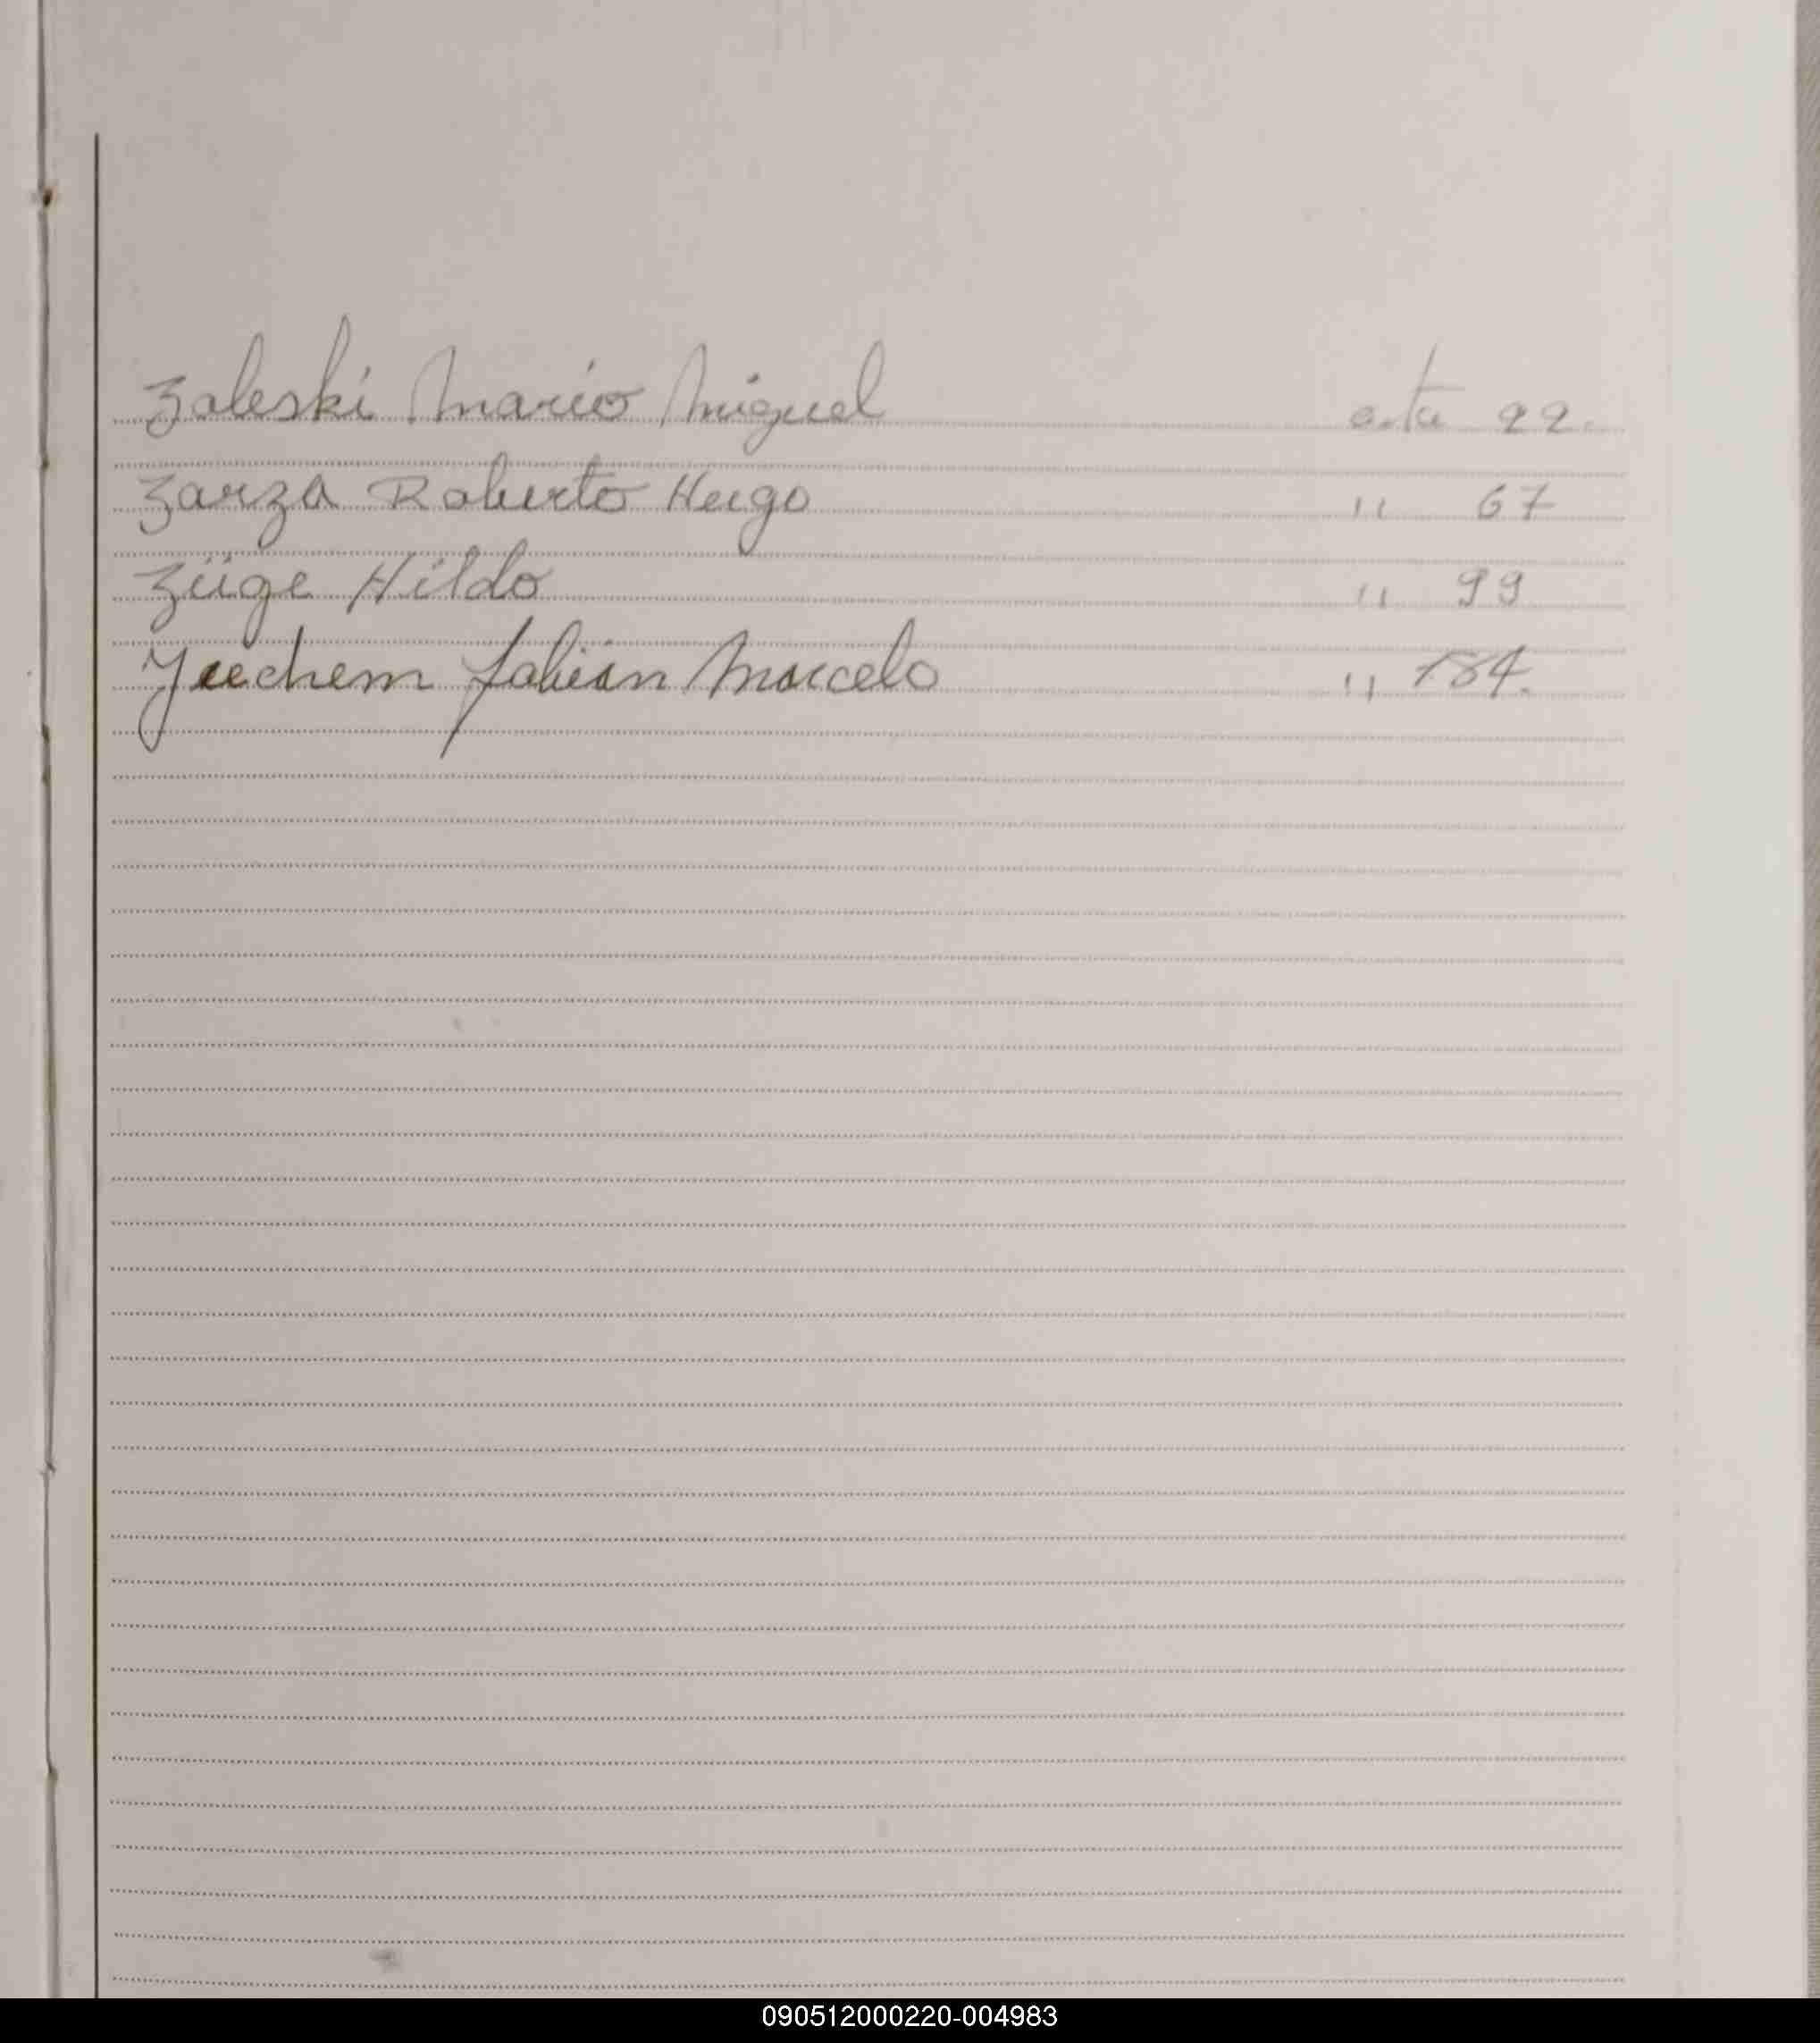 Zaleski Mario Miguel acta 22.
Zarza Roberto Hugo " 67
Züge Hildo " 99
Fabian Marcelo " 184.
090512000220-004983